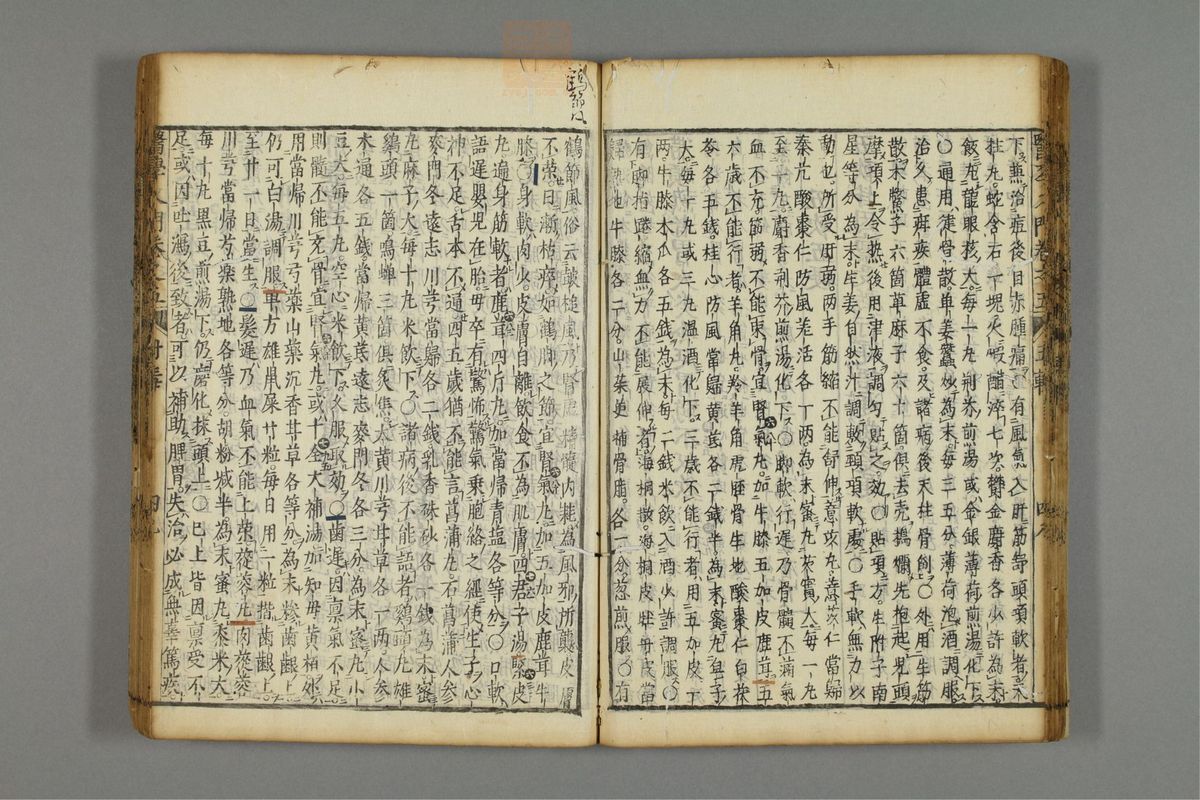 下焦治痘後目赤腫痛○有風氣入肝筋舒頭項軟者天
柱丸蛇含石一塊火煆醋淬七次欝金麝香各少許為末
飯丸龍眼核大每一丸荆芥煎湯或金銀薄荷煎湯化下
○通用健骨散单姜蠶炒為末每三五分薄荷泡酒調服
治久患疳疾體虛不食及諸病後天柱骨倒○外用生筋
散木鱉子六箇草麻子六十箇俱去壳搗爛先抱起兒頭
摩項上令熱後用津液調勻貼之效○貼項方生附子南
星等分為末生姜自然汁調敷頸項軟處○手軟無力以
動也所受肝弱两手筋縮不能舒伸意苡丸薏苡仁當歸
秦艽酸棗仁防風羌活各一两為末蜜丸芡實大每一丸
至二丸麝香荆芥煎湯化下○脚軟行遲乃骨髓不滿氣
血不充筋弱不能束骨宜腎氣丸加牛膝五加皮鹿茸五
六歲不能行者羊角丸羚羊角虎脛骨生地酸棗仁白茯
苓各五錢桂心防風當歸黄茋各二錢半為末蜜丸皂子
大每十丸或三丸溫酒化下三歲不能行者用五加皮一
两牛膝木瓜各五錢為末每二錢米飲入酒少許調服○
有脚指踡縮無力不能展伸者海桐散海桐皮牡丹皮當
歸熟地牛膝各二分山茱萸補骨脂各一分葱煎服○有
鶴節風俗云皷槌風乃腎虛精髓内耗為風邪所襲皮膚
不荣日漸枯瘁如鶴脚之節宜腎氣丸加五加皮鹿茸牛
膝○身軟肉少皮膚自離飲食不為肌膚四君子湯緊皮
丸遍身筋軟者鹿茸四斤丸加當歸青塩各等分○口軟
語遲嬰兒在胎母卒有驚怖驚氣乗胞絡之經使生子心
神不足舌本不通四五歲猶不能言菖蒲丸石菖蒲人参
麥門冬遠志川芎當歸各二錢乳香硃砂各一錢為末蜜
丸麻子大每十丸米飲下○諸病後不能語者鷄頭丸雄
鷄頭一箇鳴蟬三箇俱炙焦大黄川芎甘草各一两人参
木通各五錢當帰黄茋遠志麥門冬各三分為末蜜丸小
豆大每五丸空心米飲下久服取効○齒遲因禀氣不足
則髓不能充骨宜腎氣丸或十全大補湯加知母黄栢外
用當帰川芎芍藥山藥沉香甘草各等分為末糝齒齦上
仍可白湯調服单方雄鼠屎廿粒每日用一粒揩齒齦上
至廿一日當生○髮遲乃血氣不能上榮蓯蓉丸肉蓯蓉
川芎當帰芍薬熟地各等分胡粉减半為末蜜丸黍米大
每十丸黒豆煎湯下仍磨化抹頭上○已上皆因禀受不
足或因吐瀉後致者可以補助脾胃失治必成無辜篤疾